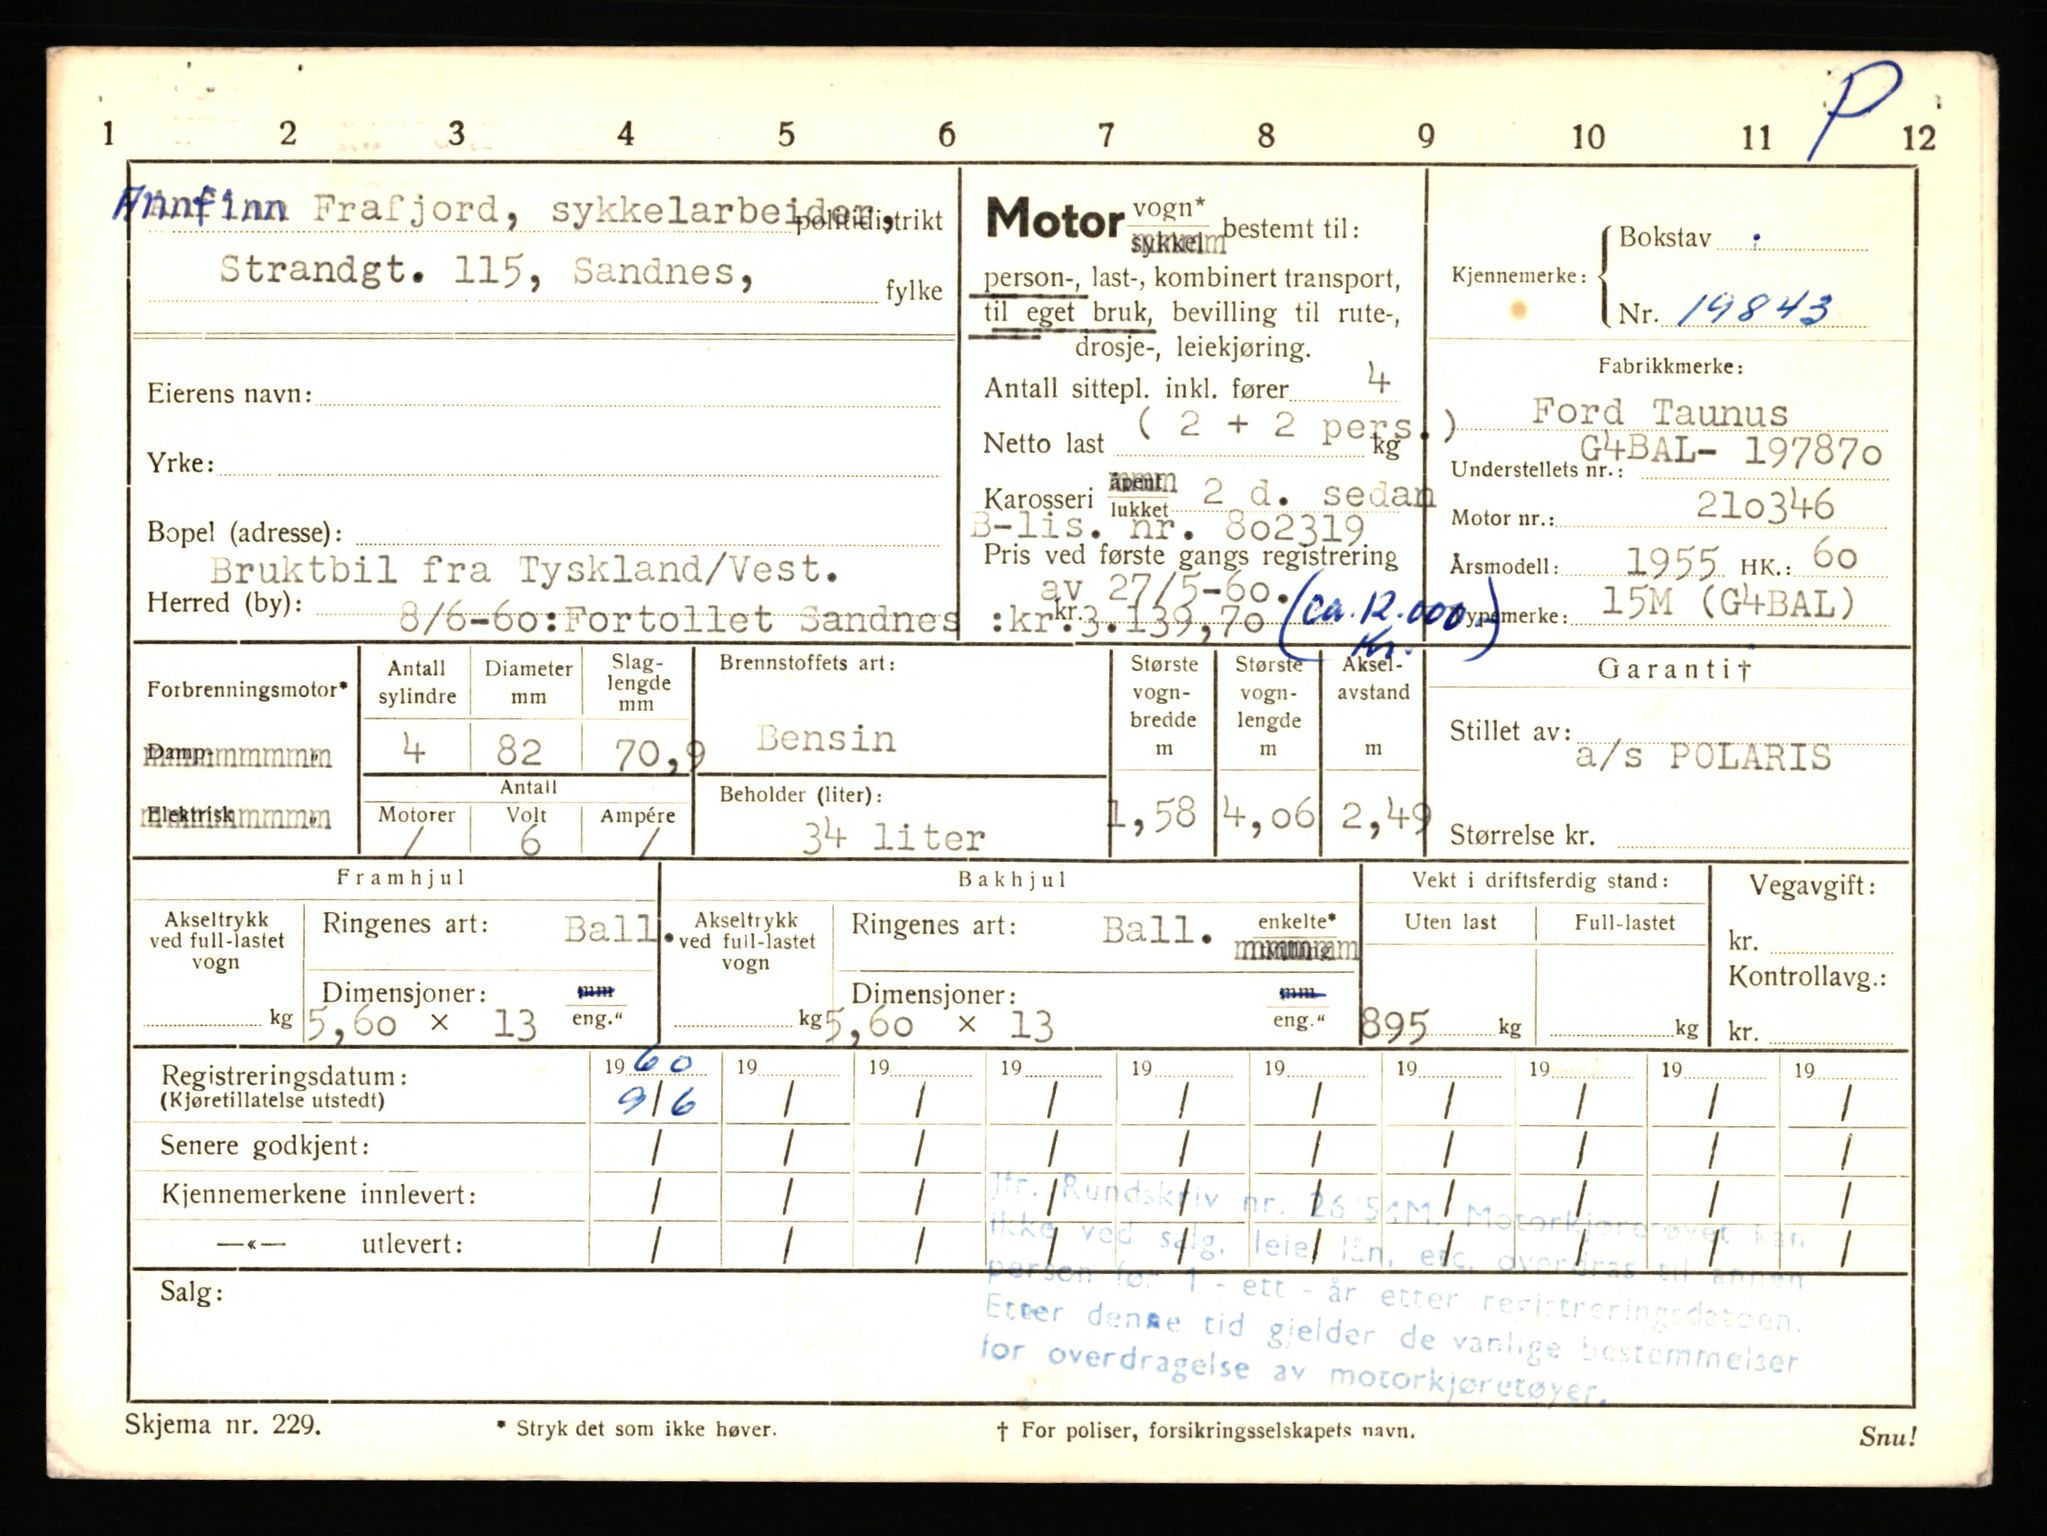 P
1 2 3 4 5 6 7 8 9 10 11 12
Annfinn Frafjord, sykkelarbeider, politidistrikt
Strandgt. 115, Sandnes, fylke
Eierens navn:
Yrke:
Bopel (adresse):
Bruktbil fra Tyskland/Vest.
Herred (by): 8/6-60:Fortollet Sandnes :kr.3.139,70
Motor vogn* sykkel bestemt til:
person-, last-, kombinert transport,
til eget bruk, bevilling til rute-,
drosje-, leiekjøring.
Antall sittepl. inkl. fører 4
( 2 + 2 pers.)
Netto last kg
Karosseri åpent lukket 2 d. sedan
B-lis. nr. 802319
Pris ved første gangs registrering
av 27/5-60.
kr. (ca. 12.000.-
Kr. )
Kjennemerke: Bokstav
Nr. 19843
Fabrikkmerke:
Ford Taunus
G4BAL- 197870
Understellets nr.:
Motor nr.: 210346
Årsmodell: 1955 HK.: 60
Typemerke: 15M (G4BAL)
Forbrenningsmotor*
Damp- „
Elektrisk „
Antall sylindre
Diameter mm
Slag-
lengde
mm
4 82 70,9
Antall
Motorer Volt Ampére
/ 6 /
Brennstoffets art:
Bensin
Beholder (liter):
34 liter
Største
vogn-
bredde
m
1,58
Største
vogn-
lengde
m
4,06
Aksel-
avstand
m
2,49
Garanti†
Stillet av:
a/s POLARIS
Størrelse kr.
Framhjul
Akseltrykk
ved full-lastet
vogn
kg
Ringenes art: Ball.
Dimensjoner: mm
5,60 x 13 eng."
Bakhjul
Akseltrykk
ved full-lastet
vogn
kg
Ringenes art: Ball. enkelte*
tvilling
Dimensjoner: mm
5,60 x 13 eng."
Vekt i driftsferdig stand:
Uten last Full-lastet
895 kg kg
Vegavgift:
kr.
Kontrollavg.:
kr.
Registreringsdatum: 1960 19 19 19 19 19 19 19 19 19
(Kjøretillatelse utstedt) 9/6 / / / / / / / / /
Senere godkjent: / / / / / / / / / /
Kjennemerkene innlevert: / / / / / / / / / /
—«— utlevert: / / / / / / / / / /
Salg:
Jfr. Rundskriv nr. 26 54M. Motorkjøretøyet kan
ikke ved salg, leie, lån, etc. overdras til annen
person før 1 - ett - år etter registreringsdatoen.
Etter denne tid gjelder de vanlige bestemmelser
for overdragelse av motorkjøretøyer.
Skjema nr. 229. * Stryk det som ikke høver. † For poliser, forsikringsselskapets navn. Snu!